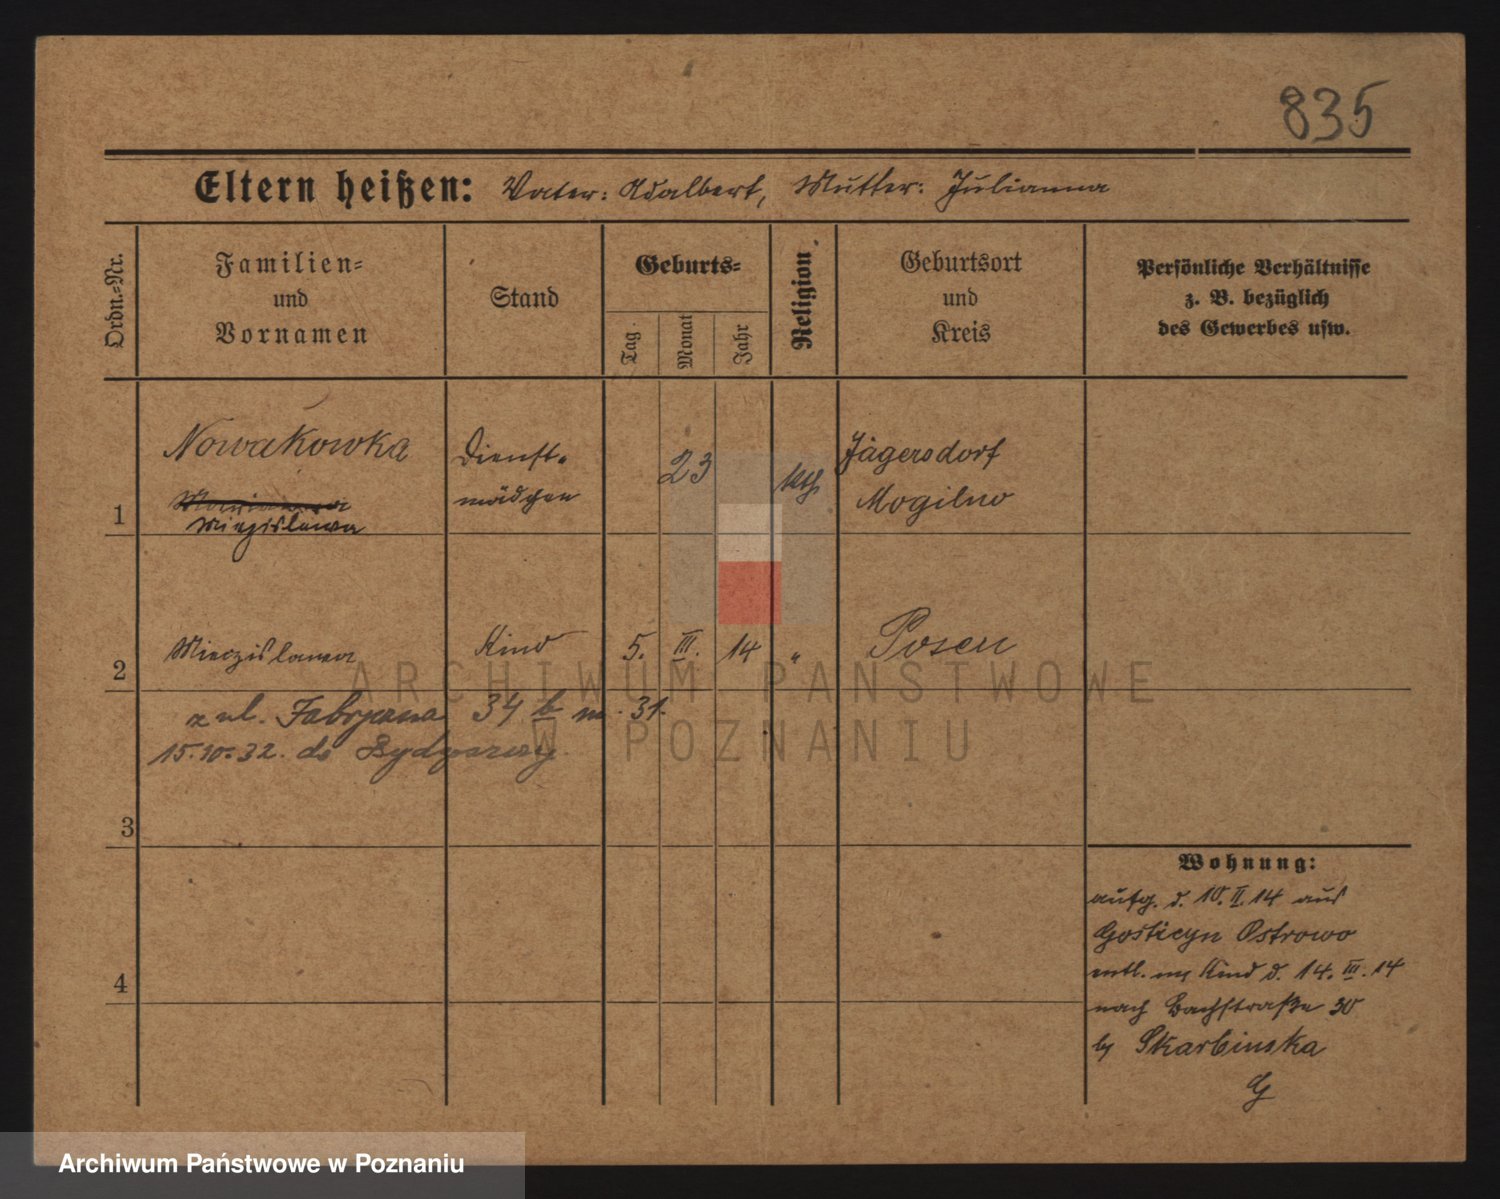 835
Eltern heißen: Vater: Adalbert, Mutter: Julianna
Ordn.-Nr.
Familien-
und
Vornamen
Stand
Geburts-
Tag.
Monat
Jahr
Religion
Geburtsort
und
Kreis
Persönliche Verhältnisse
z. B. bezüglich
des Gewerbes usw.
1
Nowakowka
Miezislawa
Dienst-
mädchen
23
kth
Jägersdorf
Mogilno
2
Miezislawa
Kind
5. III. 14
"
Posen
z ul. Fabryczna 34 b m. 31.
15.10.32. do Bydgoszczy.
3
4
Wohnung:
aufg. d. 10. II. 14 aus
Gosticyn Ostrowo
entl. m Kind d. 14. III. 14
nach Bachstraße 30
by Skarbinska
G
ARCHIWUM PAŃSTWOWE
W POZNANIU
Archiwum Państwowe w Poznaniu